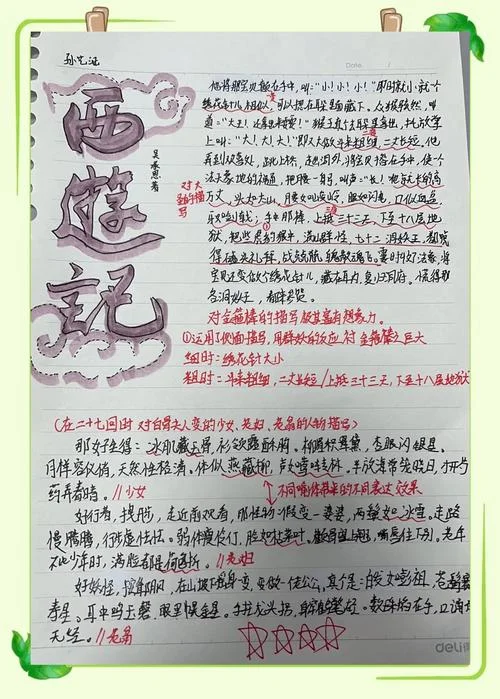 孙艺涵
Date. /
西
遊
記
吴承恩著
他将那宝贝颠在手中,叫:“小!小!小!”即时就小做一个
绣花针儿相似,可以揌在耳朵里面藏下。众猴骇然,叫
道:“大王!还拿出来耍耍!”猴王真个去耳朵里拿出,托放掌
上叫:“大!大!大!”即又大做斗来粗细,二丈长短,他
弄到欢喜处,跳上桥,走出洞外,将宝贝揝在手中,使一个
法天象地的神通,把腰一躬,叫声:“长!”他就长的高
万丈,头如太山,腰如峻岭,眼如闪电,口似血盆,
牙如剑戟;手中那棒,上抵三十三天,下至十八层地
狱,把些虎豹狼虫,满山群怪,七十二洞妖王,都唬
得磕头礼拜,战兢兢魄散魂飞。霎时收了法象,将
宝贝还变做个绣花针儿,藏在耳内,复归洞府。慌得那
各洞妖王,都来参贺。
对大圣的描写
对金箍棒的描写极其富有想象力。
①运用了侧面描写,用群妖的反应衬金箍棒之巨大
细时:绣花针大小
粗时:斗来粗细,二丈长短/上抵三十三天,下至十八层地狱
(在二十七回时对白骨夫人变的少女、老妇、老翁的人物描写)
那女子生得:冰肌藏玉骨,衫领露酥胸。柳眉积翠黛,杏眼闪银星。
月样容仪俏,天然性格清。体似燕藏柳,声如莺啭林。半放海棠笼晓日,才开芍
药弄春晴。//少女
不同喻体带来的不同表达效果
两鬓如冰雪。走路
慢腾腾,行步虚怯怯。弱体瘦伶仃,脸如枯菜叶。颧骨望上翘,嘴唇往下别。老年
不比少年时,满脸都是荷叶褶。//老妇
白发如彭祖,苍髯赛
寿星。耳中鸣玉磬,眼里幌金星。手拄龙头拐,身穿鹤氅轻。数珠掐在手,口诵南
无经。//老翁
deli